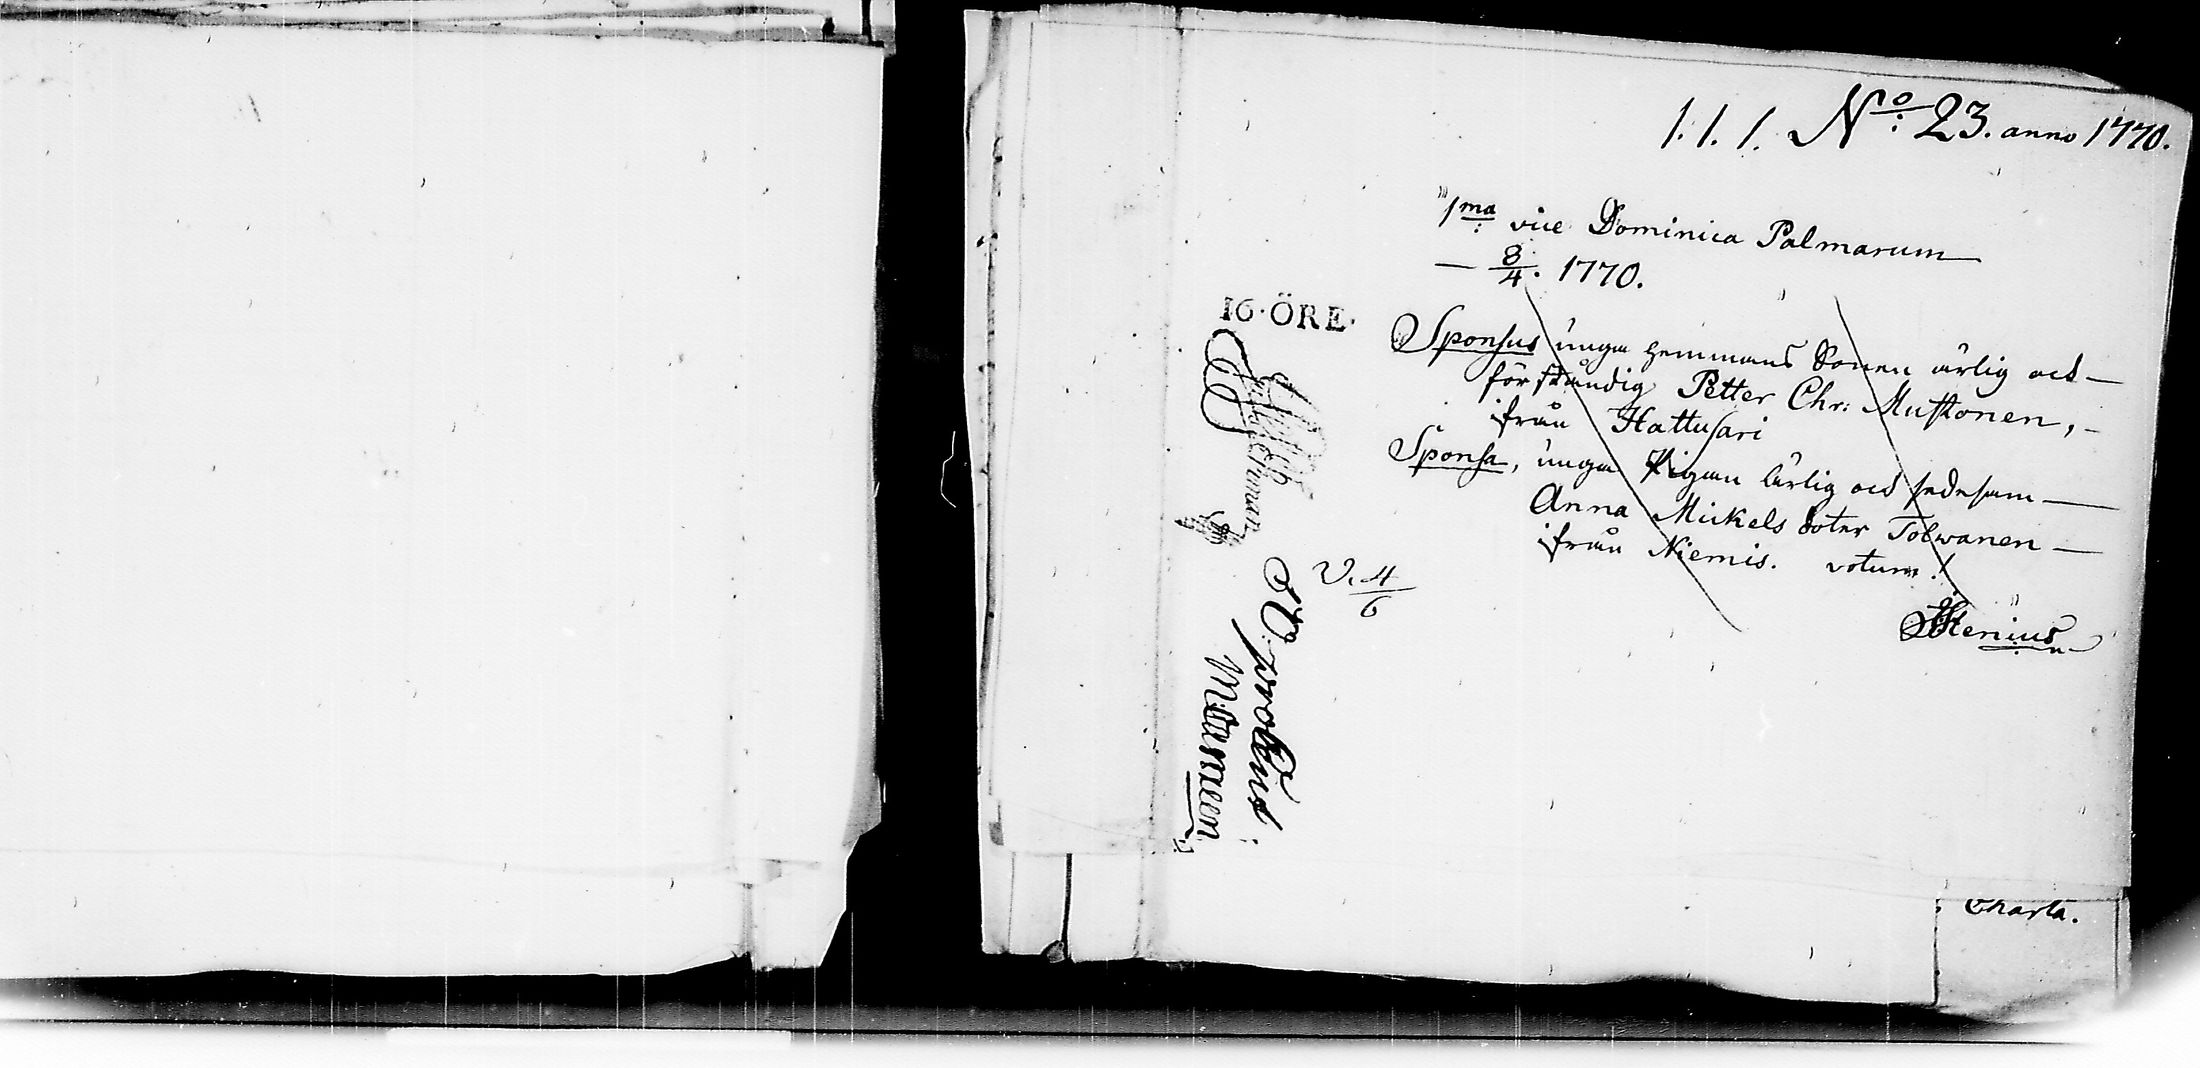 1. 1. 1. No: 23. anno 1770.
1ma: vice Dominica Palmarum
— 8/4. 1770.
16·ÖRE·
Sponsus unga hemmans Sonen ärlig och —
förståndig Petter Chr: Mustonen, –
ifrån Hattusari
Sponsa, unga Pigan ärlig och sedesam —
Anna Mickels doter Tolwanen —
ifrån Niemis. votum!
V. 4/6
Charta.